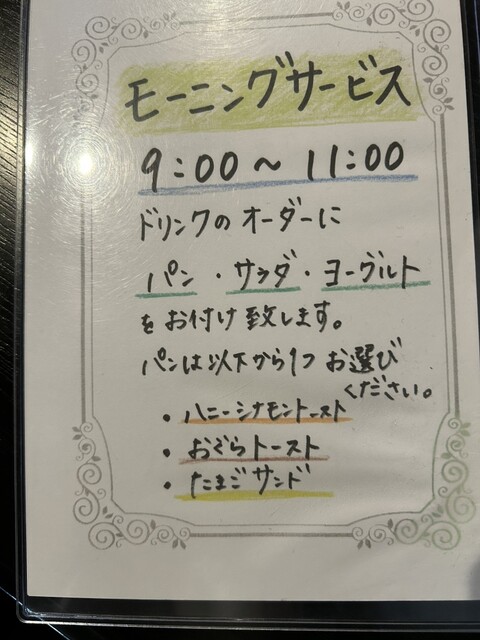 モーニングサービス
9:00～11:00
ドリンクのオーダーに
パン・サラダ・ヨーグルト
をお付け致します。
パンは以下から1つお選び
ください。
・ハニーシナモントースト
・おぐらトースト
・たまごサンド